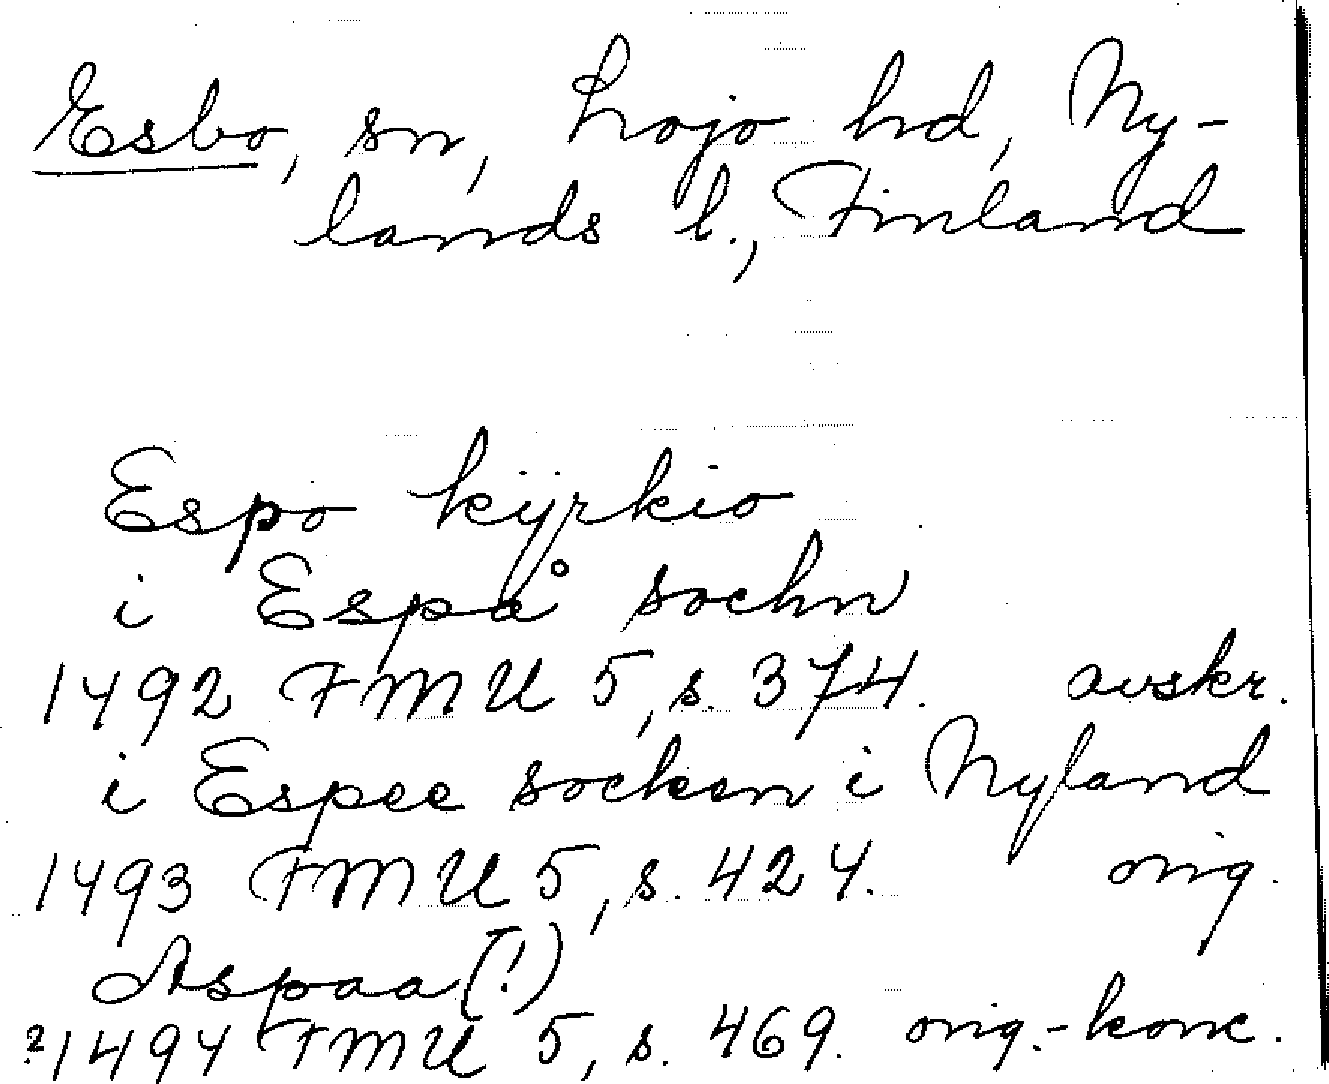 Esbo, sn, Lojo hd, Ny-
lands l., Finland
Espo kÿrkio
i Espå sochn
1492 FMU 5, s. 374. avskr.
i Espee socken i Nyland
1493 FMU 5, s. 424. orig.
Aspaa (!)
?1494 FMU 5, s. 469. orig.-konc.